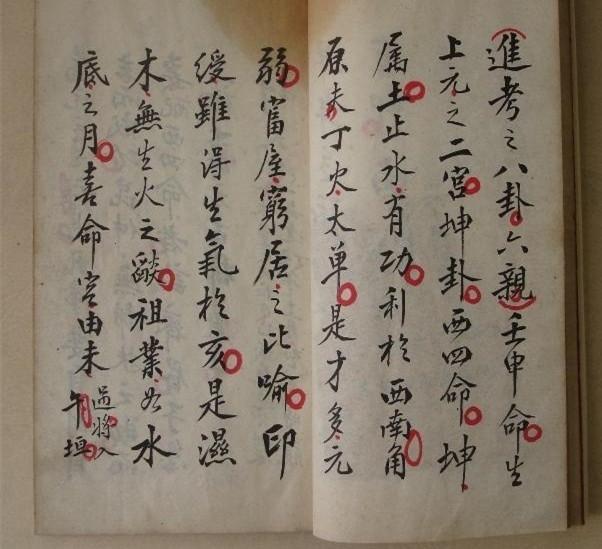 進考之八卦六親壬申命生
上元之二宮坤卦西四命坤
属土止水有功利於西南角
原夫丁火太单是才多元
弱富屋窮居之比喻印
綬雖得生氣於亥是濕
木無生火之燄祖業如水
底之月喜命宮由未過將入午垣